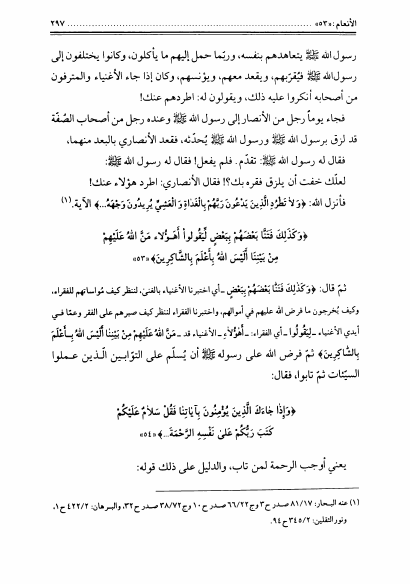 الأنعام: «٥٣» ........ ٢٩٧
رسول الله ﷺ يتعاهدهم بنفسه، وربّما حمل إليهم ما يأكلون، وكانوا يختلفون إلى
رسول الله ﷺ فيُقرّبهم، ويقعد معهم، ويؤنسهم، وكان إذا جاء الأغنياء والمترفون
من أصحابه أنكروا عليه ذلك، ويقولون له: اطردهم عنك!
فجاء يوماً رجل من الأنصار إلى رسول الله ﷺ وعنده رجل من أصحاب الصُفّة
قد لزق برسول الله ﷺ ورسول الله ﷺ يُحدّثه، فقعد الأنصاري بالبعد منهما،
فقال له رسول الله ﷺ: تقدّم. فلم يفعل! فقال له رسول الله ﷺ:
لعلّك خفت أن يلزق فقره بك؟! فقال الأنصاري: اطرد هؤلاء عنك!
فأنزل الله: ﴿وَلاَ تَطْرُدِ الَّذِينَ يَدْعُونَ رَبَّهُمْ بِالْغَدَاةِ وَالْعَشِيِّ يُرِيدُونَ وَجْهَهُ...﴾ الآية. (١)
﴿وَكَذَلِكَ فَتَنَّا بَعْضَهُمْ بِبَعْضٍ لِّيَقُولُوا أَهَؤُلاَءِ مَنَّ اللهُ عَلَيْهِمْ
مِنْ بَيْنِنَا أَلَيْسَ اللهُ بِأَعْلَمَ بِالشَّاكِرِينَ﴾ «٥٣»
ثمّ قال: ﴿وَكَذَلِكَ فَتَنَّا بَعْضَهُمْ بِبَعْضٍ - أي اختبرنا الأغنياء بالغنى، لننظر كيف مُواساتهم للفقراء،
وكيف يُخرجون ما فرض الله عليهم في أموالهم، واختبرنا الفقراء لننظر كيف صبرهم على الفقر وعمّا في
أيدي الأغنياء - لِيَقُولُوا - أي الفقراء: - أَهَؤُلاَءِ - الأغنياء قد - مَنَّ اللهُ عَلَيْهِمْ مِنْ بَيْنِنَا أَلَيْسَ اللهُ بِأَعْلَمَ
بِالشَّاكِرِينَ﴾ ثمّ فرض الله على رسوله ﷺ أن يُسلّم على التوّابين الّذين عملوا
السيّئات ثمّ تابوا، فقال:
﴿وَإِذَا جَاءَكَ الَّذِينَ يُؤْمِنُونَ بِآيَاتِنَا فَقُلْ سَلاَمٌ عَلَيْكُمْ
كَتَبَ رَبُّكُمْ عَلَى نَفْسِهِ الرَّحْمَةَ...﴾ «٥٤»
يعني أوجب الرحمة لمن تاب، والدليل على ذلك قوله:
(١) عنه البحار: ٨١/١٧ صدر ح٣ وج٦٦/٢٢ صدر ح١٠ وج٣٨/٧٢ صدر ح٣٢، والبرهان: ٤٢٢/٢ ح١،
ونور الثقلين: ٣٤٥/٢ ح٩٤.